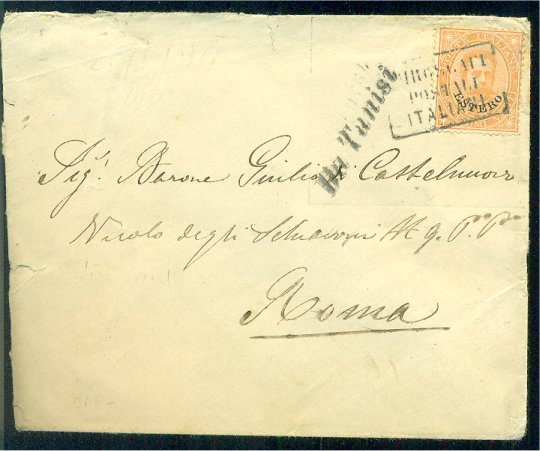 Da Tunisi
PIROSCAFI
POSTALI
ITALIANI
ESTERO
Sig. Barone Giulio di Castelnuovo
Vicolo degli Schiavoni
Roma